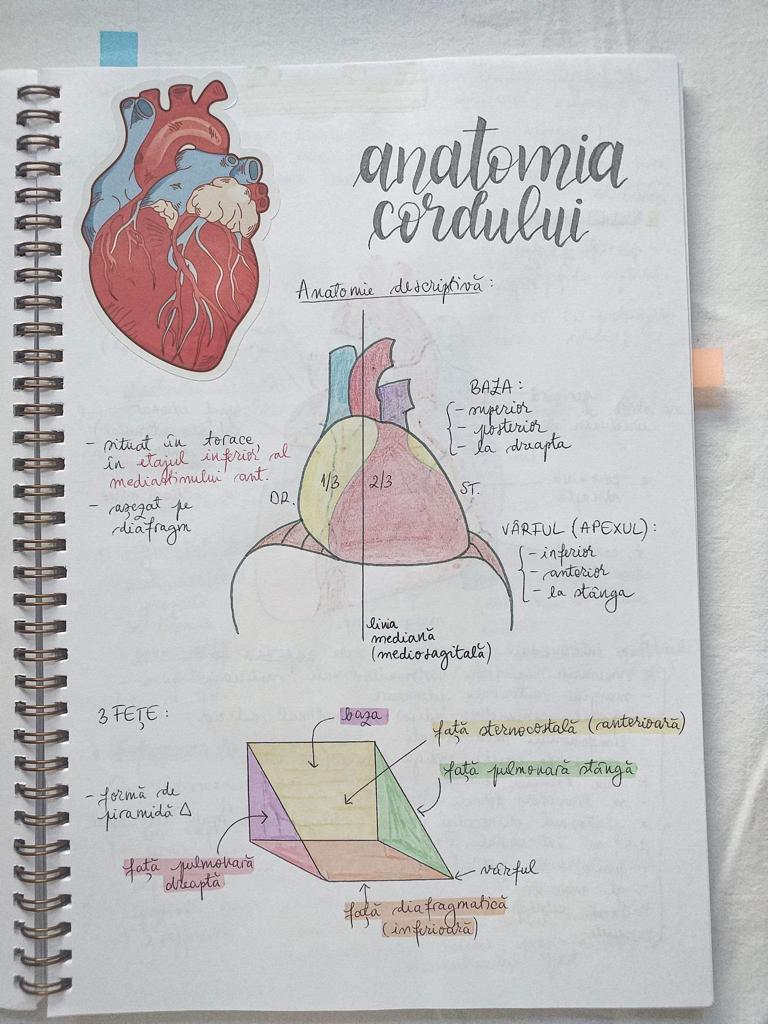 anatomia
cordului
Anatomie descriptivă:
BAZA:
- superior
- posterior
- la dreapta
- situat în torace,
în etajul inferior al
mediastinului ant.
- așezat pe
diafragm
1/3
2/3
DR.
ST.
VÂRFUL (APEXUL):
- inferior
- anterior
- la stânga
linia
mediană
(mediosagitală)
3 FEȚE:
baza
față sternocostală (anterioară)
față pulmonară stângă
- formă de
piramidă Δ
față pulmonară
dreaptă
vârful
față diafragmatică
(inferioară)